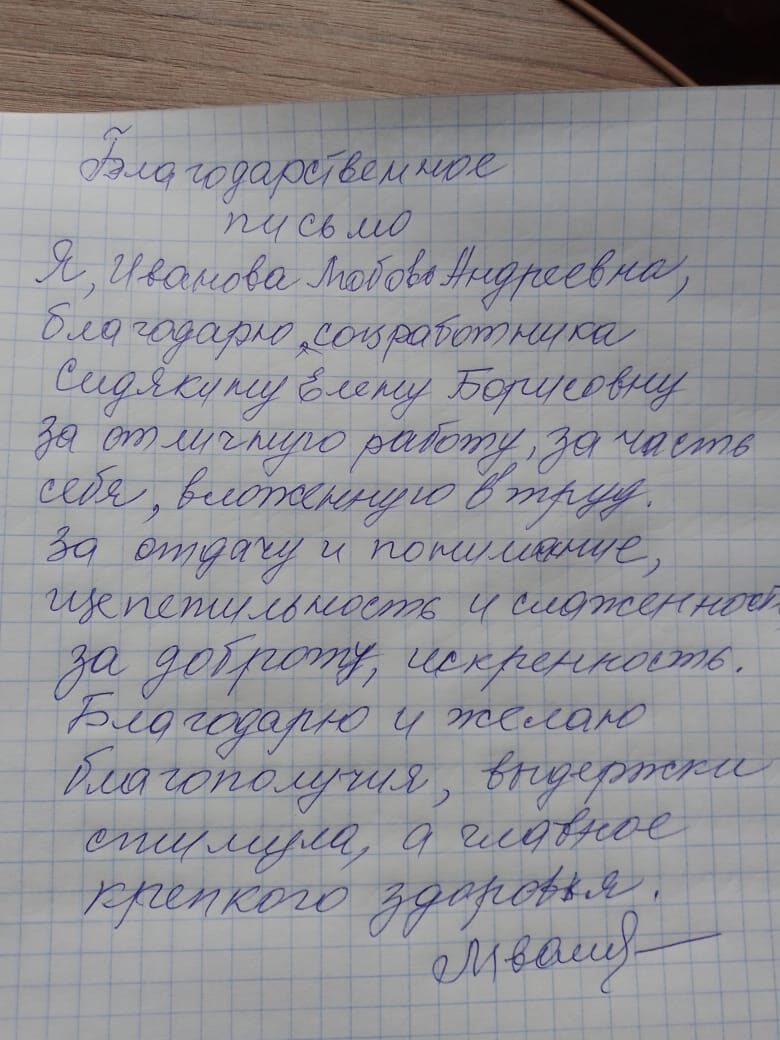 Благодарственное
письмо
Я, Иванова Любовь Андреевна,
благодарю, соцработника
Сидякину Елену Борисовну
за отличную работу, за часть
себя, вложенную в труд.
За отдачу и понимание,
щепетильность и слаженност
за доброту, искренность.
Благодарю и желаю
благополучия, выдержки
стимула, а главное
крепкого здоровья.